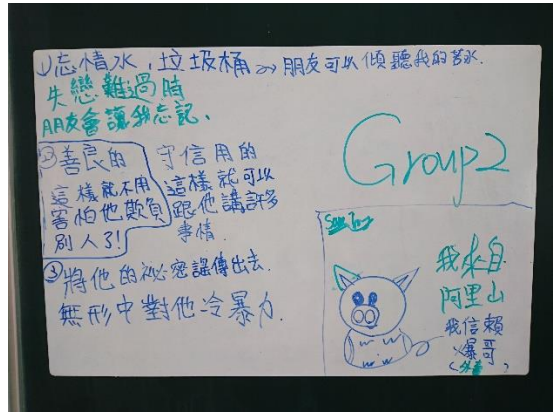 1) 忘情水、垃圾桶 → 朋友可以傾聽我的苦水.
失戀難過時
朋友會讓我忘記、
Group2
②善良的
這樣就不用
害怕他欺負
別人了!
守信用的
這樣就可以
跟他講許多
事情.
③將他的祕密謠傳出去.
無形中對他冷暴力.
我來自
阿里山
我信賴
爆哥